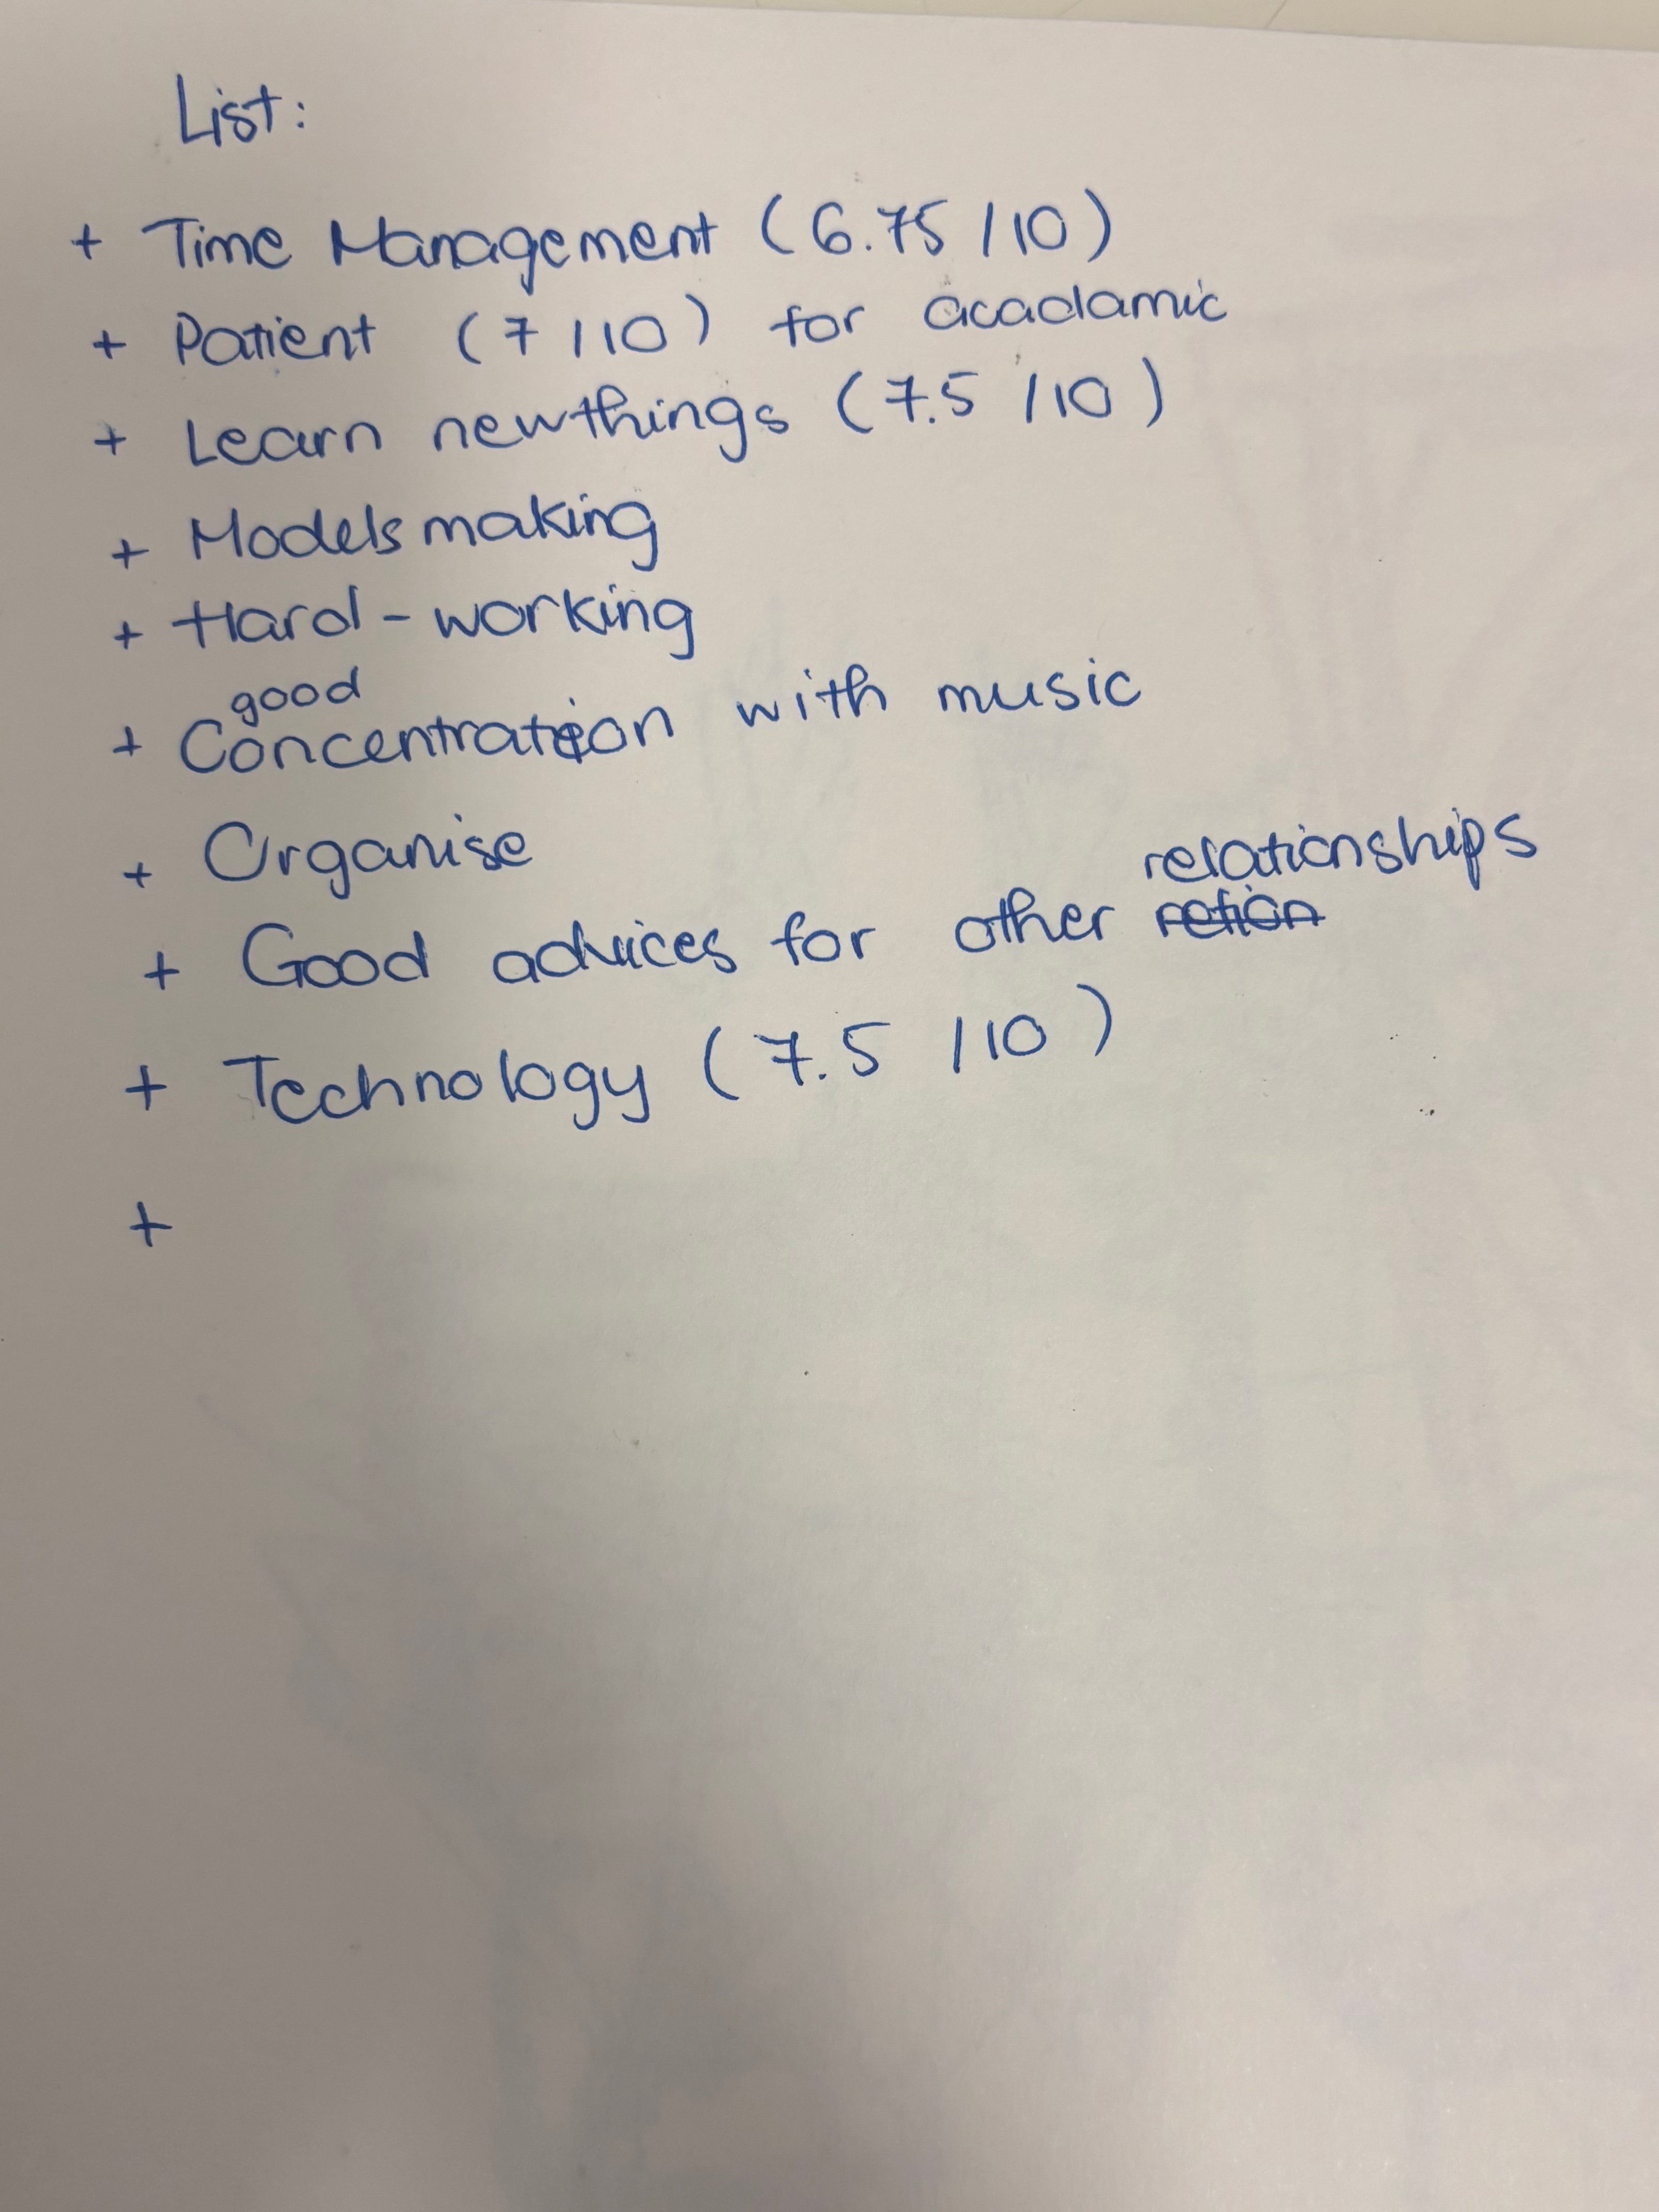 List:
+ Time Management (6.75 / 10)
+ Patient (7 / 10) for acadamic
+ Learn newthings (7.5 / 10)
+ Models making
+ Hard - working
good
+ Concentration with music
+ Organise
relationships
+ Good advices for other retion
+ Technology (7.5 / 10)
+